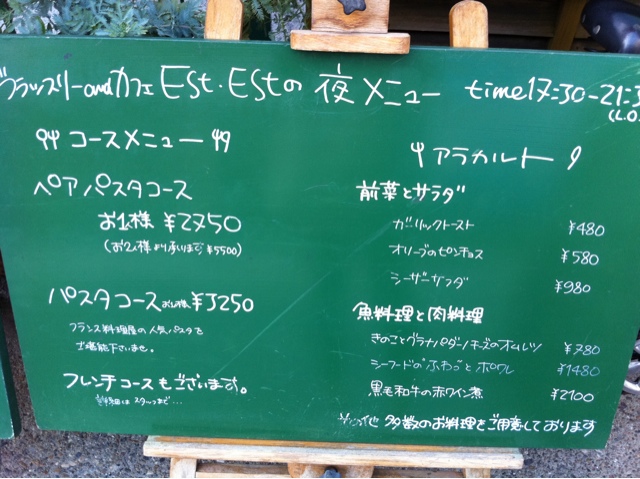 ブラッスリーandカフェ ESt・EStの 夜メニュー time17:30-21:3
(L.O
コースメニュー
ペアパスタコース
お1人様 ¥2750
(お2人様より承ります ¥5500)
パスタコース お1人様 ¥3250
フランス料理屋の人気パスタを
ご堪能下さいませ。
フレンチコースもございます。
詳細は スタッフまで...
アラカルト
前菜とサラダ
ガーリックトースト ¥480
オリーブのピンチョス ¥580
シーザーサラダ ¥980
魚料理と肉料理
きのことグラナパダーノチーズのオムレツ ¥780
シーフードの ポワレ ¥1480
黒毛和牛の赤ワイン煮 ¥2100
その他 多数のお料理をご用意しております